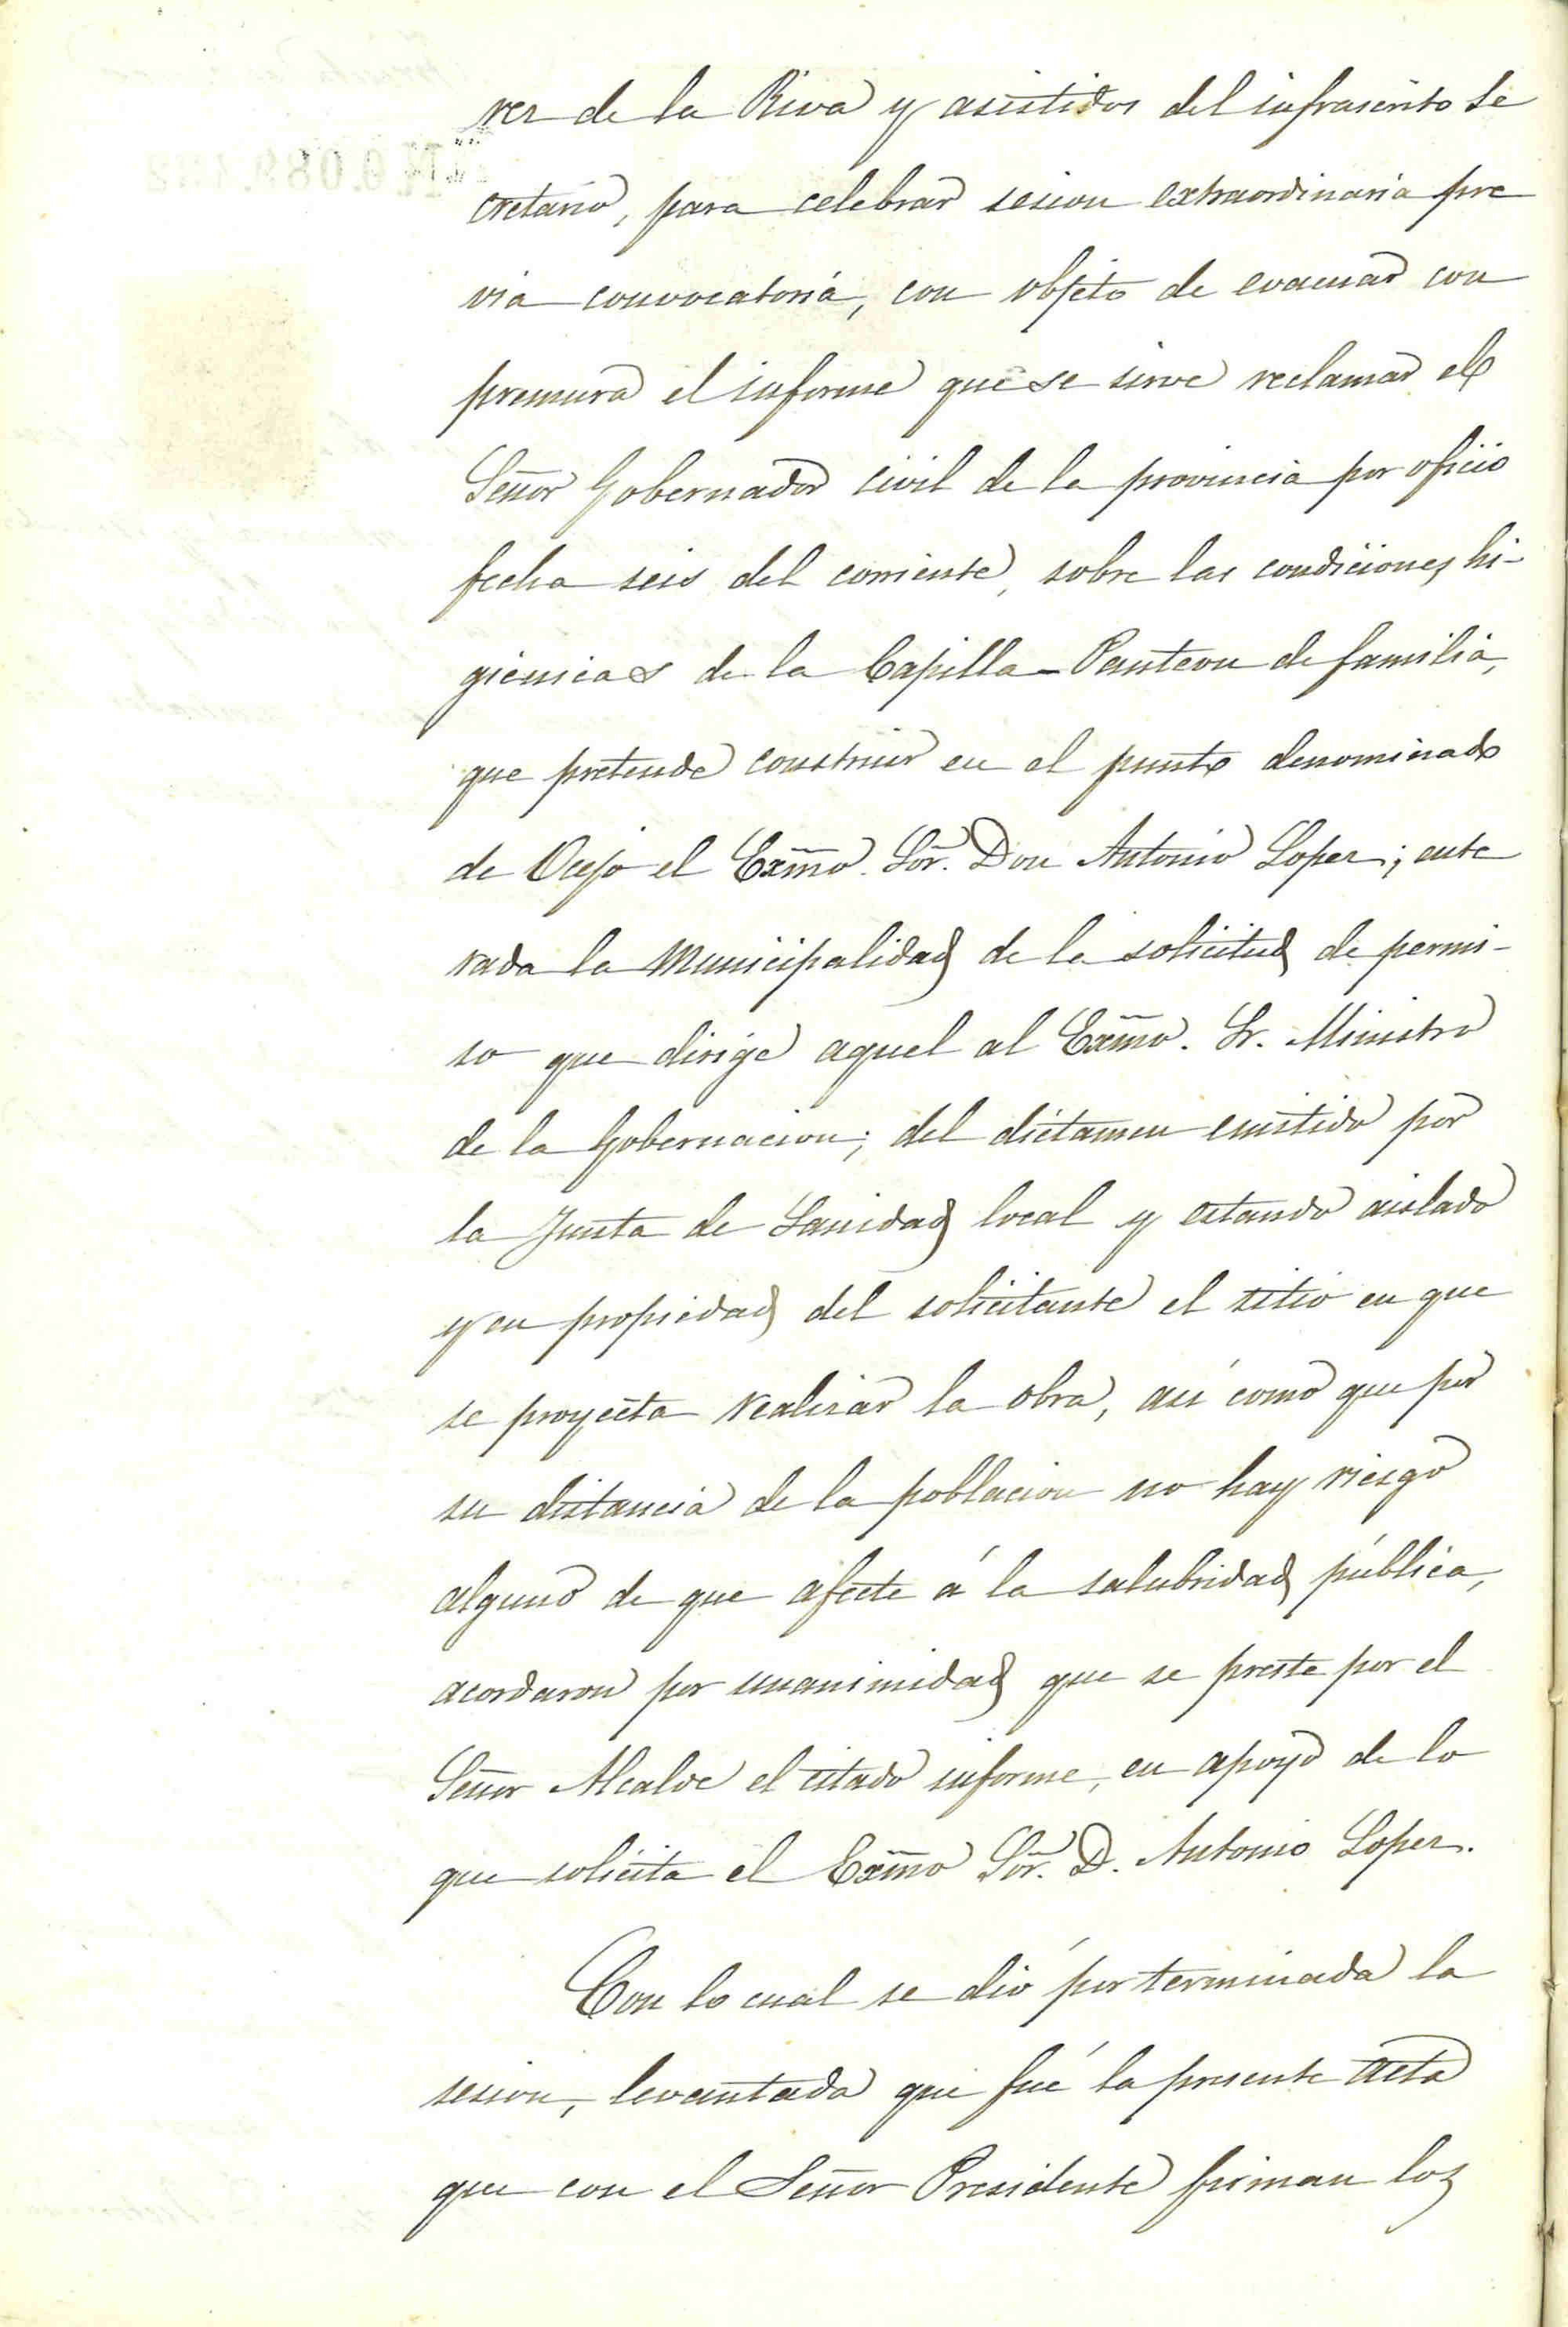 rez de la Riva y asistidos del infrascrito Se
cretario, para celebrar sesion extraordinaria pre
via convocatoria, con objeto de evacuar con
premura el informe que se sirve reclamar el
Señor Gobernador civil de la provincia por oficio
fecha seis del corriente, sobre las condiciones hi-
giénicas de la Capilla-Panteon de familia,
que pretende construir en el punto denominado
de Ocejo el Exmo. Sor. Don Antonio Lopez; ente
rada la Municipalidad de la solicitud de permi-
so que dirige aquel al Exmo. Sr. Ministro
de la Gobernacion; del dictamen emitido por
la Junta de Sanidad local y estando aislado
y en propiedad del solicitante el sitio en que
se proyecta realizar la obra, así como que por
su distancia de la poblacion no hay riesgo
alguno de que afecte á la salubridad pública,
acordaron por unanimidad que se preste por el
Señor Alcalde el citado informe, en apoyo de lo
que solicita el Exmo Sor. D. Antonio Lopez.
Con lo cual se dió por terminada la
sesion, levantada que fué la presente acta
que con el Señor Presidente firman los